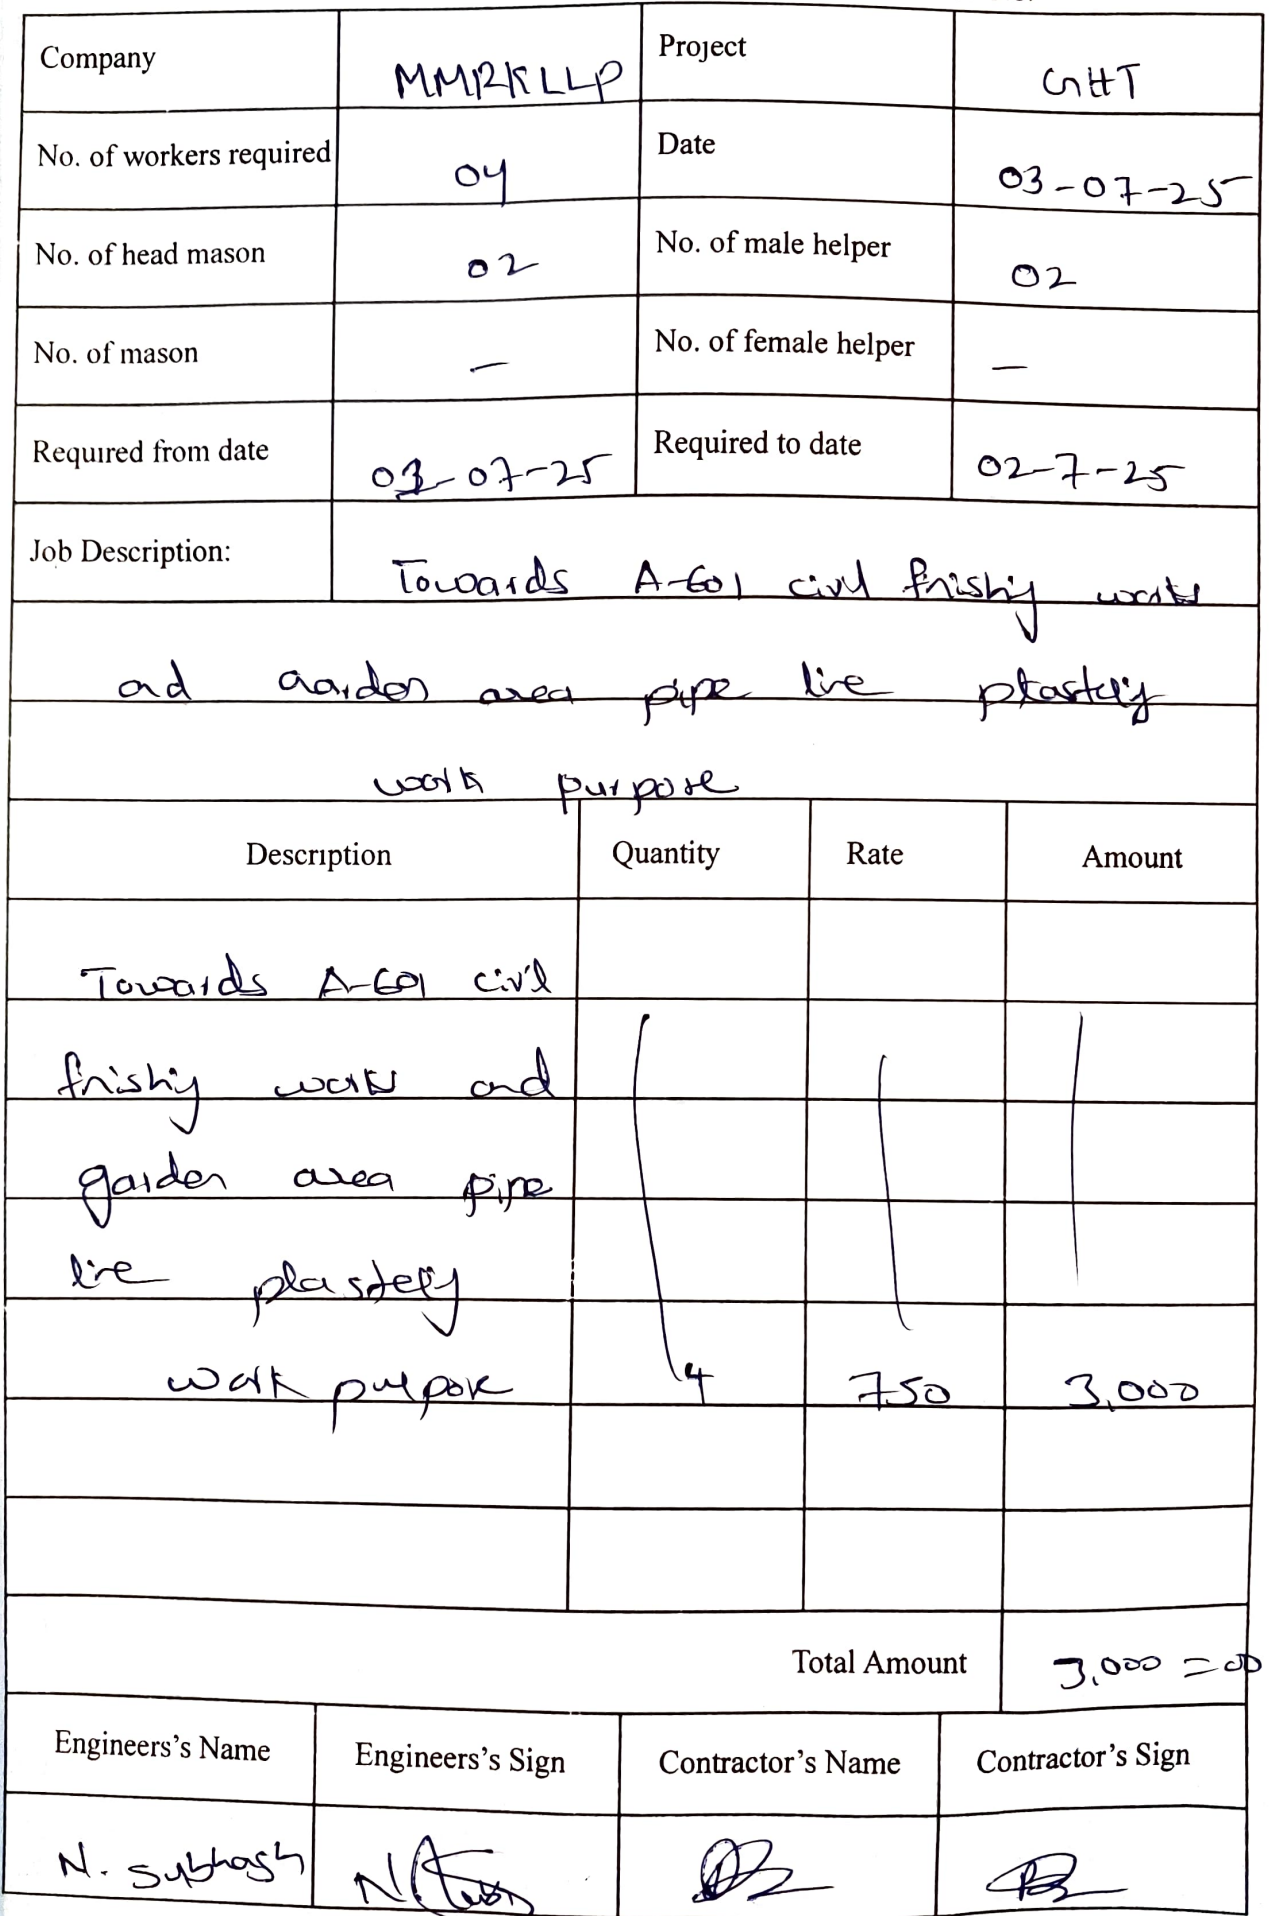 Company MMRKLLP Project GHT
No. of workers required 04 Date 03-07-25
No. of head mason 02 No. of male helper 02
No. of mason — No. of female helper —
Required from date 01-07-25 Required to date 02-7-25
Job Description: Towards A-601 civil finishing works
and Garden area pipe line plastering
work purpose
Description Quantity Rate Amount
Towards A-601 civil
finishing works and
garden area pipe
line plastering
work purpose 4 750 3,000
Total Amount 3,000=00
Engineers's Name Engineers's Sign Contractor's Name Contractor's Sign
N. Subhash